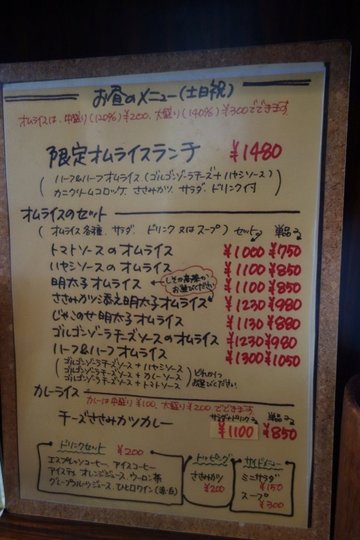 お昼のメニュー(土日祝)
オムライスは、中盛り(120%)¥200、大盛り(140%)¥300でできます
限定オムライスランチ ¥1480
(ハーフ&ハーフオムライス(ゴルゴンゾーラチーズ+ハヤシソース)
カニクリームコロッケ、ささみカツ、サラダ、ドリンク付)
オムライスのセット
(オムライス各種、サラダ、ドリンク又はスープ) セット 単品
トマトソースのオムライス ¥1000 ¥750
ハヤシソースのオムライス ¥1100 ¥850
明太子オムライス ¥1100 ¥850
しそか高菜か
お選びください
ささみカツ添え明太子オムライス ¥1230 ¥980
じゃこのせ明太子オムライス ¥1130 ¥880
ゴルゴンゾーラチーズソースのオムライス ¥1230 ¥980
ハーフ&ハーフオムライス ¥1300 ¥1050
(ゴルゴンゾーラチーズソース+ハヤシソース
ゴルゴンゾーラチーズソース+カレーソース
ゴルゴンゾーラチーズソース+トマトソース)
どれか1つ
お選びください
カレーライス
カレーは中盛り¥100、大盛り¥200でできます
サラダ+ドリンク 単品
チーズささみカツカレー ¥1100 ¥850
ドリンクセット ¥200
エスプレッソコーヒー アイスコーヒー
アイスティ オレンジジュース ウーロン茶
グレープフルーツジュース ひと口ワイン(赤・白)
トッピング
ささみカツ
¥200
サイドメニュー
ミニサラダ
¥150
スープ
¥300